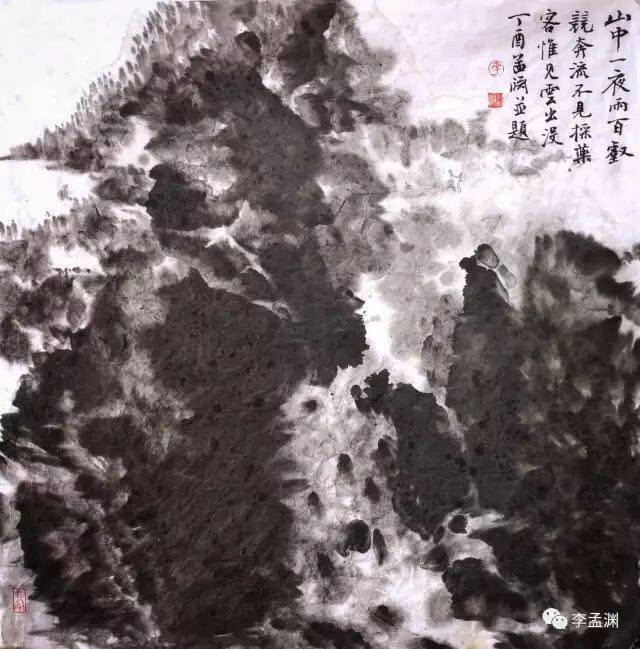 山中一夜雨百壑
競奔流不見採藥
客惟见雲出没
丁酉孟渊並題
李
李孟渊